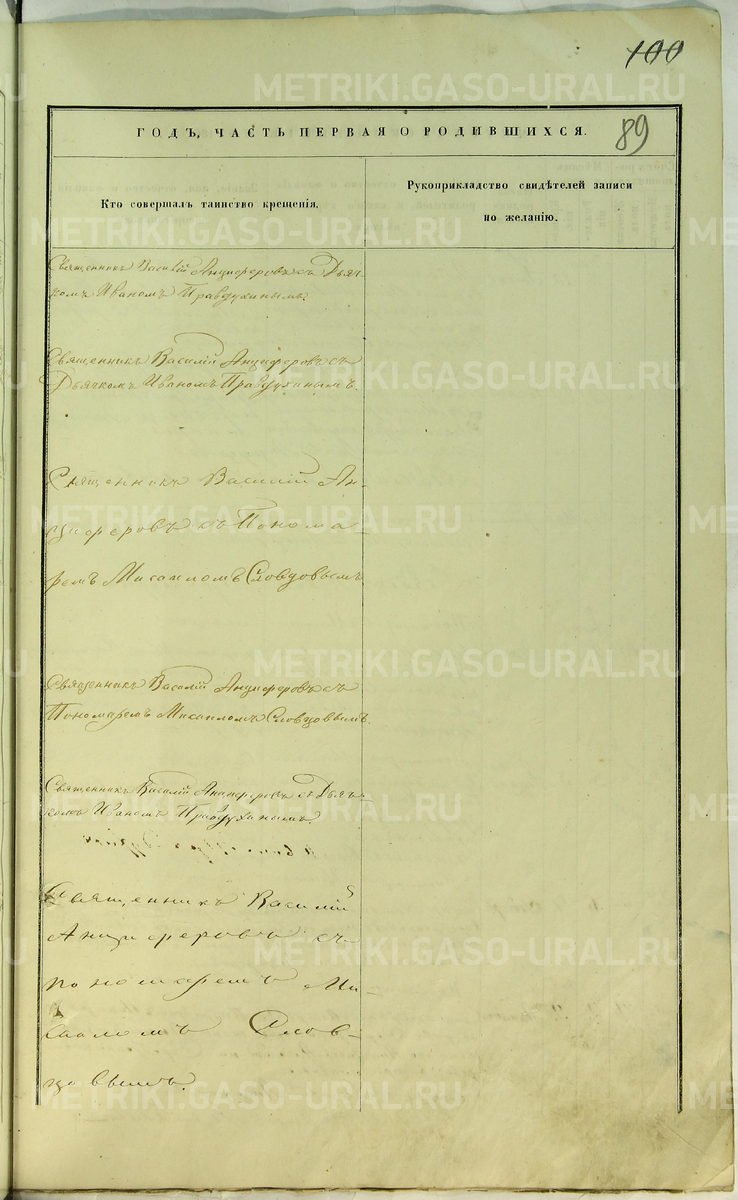 100
ГОДЪ, ЧАСТЬ ПЕРВАЯ О РОДИВШИХСЯ.
89
Кто совершалъ таинство крещенія.
Рукоприкладство свидѣтелей записи
по желанію.
Священникъ Василій Анциферовъ съ Дьяч-
комъ Иваномъ Правдухинымъ.
Священникъ Василій Анциферовъ съ
Дьячкомъ Иваномъ Правдухинымъ.
Священникъ Василій Ан-
циферовъ съ Понома-
ремъ Мисаиломъ Словцовымъ
Священникъ Василій Анциферовъ съ
Пономаремъ Мисаиломъ Словцовымъ.
Священникъ Василій Анциферовъ съ Дьяч-
комъ Иваномъ Правдухинымъ.
Священникъ Василій
Анциферовъ съ
пономаремъ Ми-
саиломъ Слов-
цовымъ.
METRIKI.GASO-URAL.RU